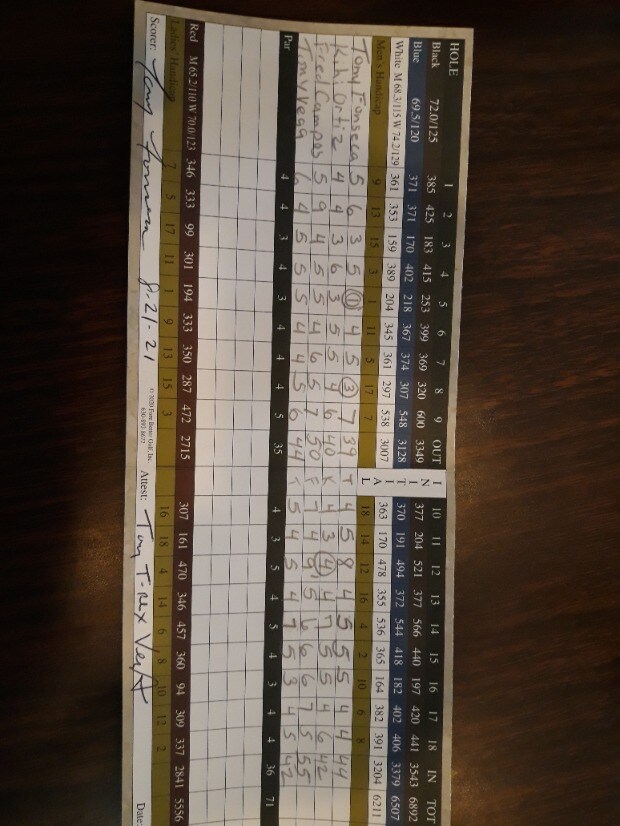 HOLE 1 2 3 4 5 6 7 8 9 OUT INITIAL 10 11 12 13 14 15 16 17 18 IN TOT
Black 72.0/125 385 425 183 415 253 399 369 320 600 3349 377 204 521 377 566 440 197 420 441 3543 6892
Blue 69.5/120 371 371 170 402 218 367 374 307 548 3128 370 191 494 372 544 418 182 402 406 3379 6507
White M 68.3/115 W 74.2/129 361 353 159 389 204 345 361 297 538 3007 363 170 478 355 536 365 164 382 391 3204 6211
Men's Handicap 9 13 15 3 1 11 5 17 7 18 14 12 16 4 2 10 6 8
Tony Fonseca 5 6 3 5 4 5 3 7 39 T 4 5 8 4 5 5 5 4 4 44
Kiki Ortiz 4 4 3 6 3 5 5 4 6 40 K 4 3 4 4 7 5 5 4 6 42
Fred Campos 5 9 4 5 5 4 6 5 7 50 F 7 4 9 5 6 6 6 7 5 55
Tony Vega 6 4 5 5 5 4 4 5 6 44 5 4 5 4 7 5 3 4 5 42
Par 4 4 3 4 3 4 4 4 5 35 4 3 5 4 5 4 3 4 4 36 71
Red M 65.2/110 W 70.0/123 346 333 99 301 194 333 350 287 472 2715 307 161 470 346 457 360 94 309 337 2841 5556
Ladies' Handicap 7 5 17 11 1 9 13 15 3 16 18 4 14 6 8 10 12 2
Scorer: Tony Fonseca 8-21-21 Attest: Tony T-Rex Date: